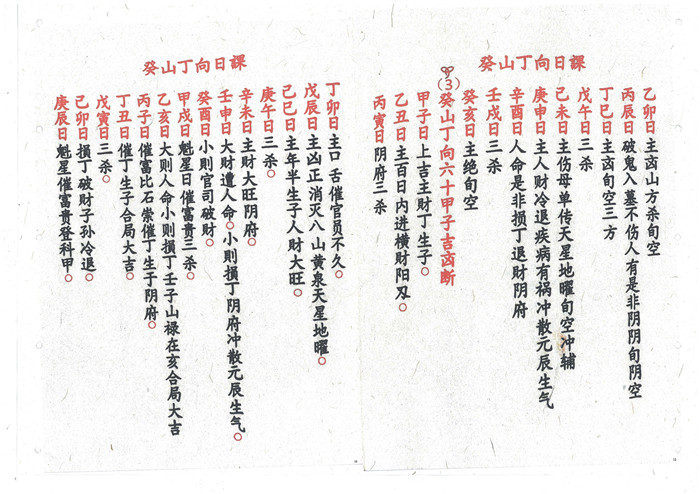 癸山丁向日課
乙卯日主卤山方杀旬空
丙辰日破鬼入墓不伤人有是非阴阴旬阴空
丁巳日主卤旬空三方
戊午日三杀
己未日主伤母单传天星地曜旬空冲辅
庚申日主人财冷退疾病有祸冲散元辰生气
辛酉日人命是非损丁退财阴府
壬戌日三杀
癸亥日主绝旬空
(3)癸山丁向六十甲子吉卤断
甲子日上吉主财丁生子。
乙丑日主百日内进横财阳刃。
丙寅日阴府三杀
癸山丁向日課
丁卯日主口舌催官员不久。
戊辰日主凶正消灭八山黄泉天星地曜。
己巳日主年半生子人财大旺。
庚午日三杀。
辛未日主财大旺阴府。
壬申日大财遭人命。小则損丁阴府冲散元辰生气。
癸酉日小则官司破财。
甲戌日魁星日催富贵三杀。
乙亥日大则人命小则損丁壬子山禄在亥合局大吉
丙子日催富比石崇催丁生于阴府。
丁丑日催丁生子合局大吉。
戊寅日三杀。
己卯日損丁破财子孙冷退。
庚辰日魁星催富贵登科甲。